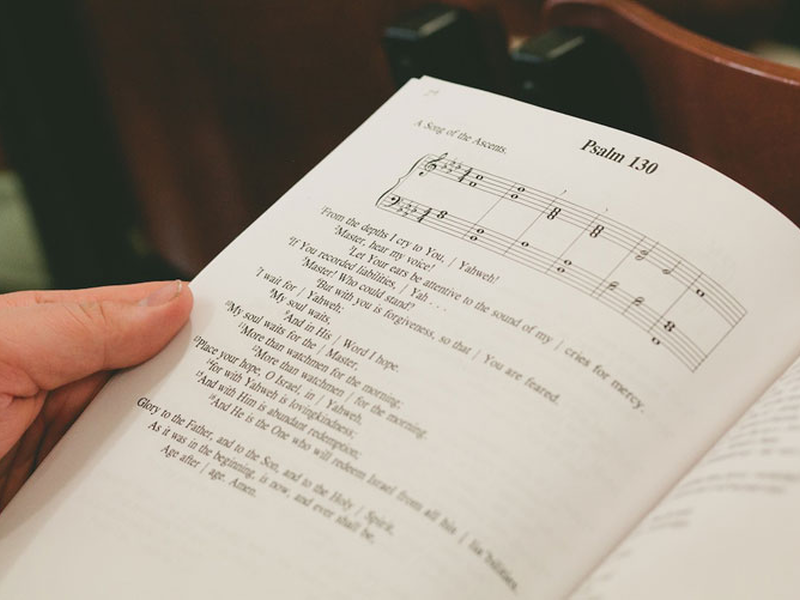 A Song of the Ascents.
Psalm 130
¹From the depths I cry to You, | Yahweh!
²Master, hear my voice!
³Let Your ears be attentive to the sound of my | cries for mercy.
⁴If You recorded liabilities, | Yah . . .
⁵Master! Who could stand?
⁶But with you is forgiveness, so that | You are feared.
⁷I wait for | Yahweh;
⁸My soul waits,
⁹And in His | Word I hope.
¹⁰My soul waits for the | Master,
¹¹More than watchmen for the morning;
¹²More than watchmen | for the morning.
¹³Place your hope, O Israel, in | Yahweh,
¹⁴for with Yahweh is lovingkindness;
¹⁵And with Him is abundant redemption;
¹⁶And He is the One who will redeem Israel from all his | lia'bilities.
Glory to the Father, and to the Son, and to the Holy | Spirit,
As it was in the beginning, is now, and ever shall be,
Age after | age. Amen.